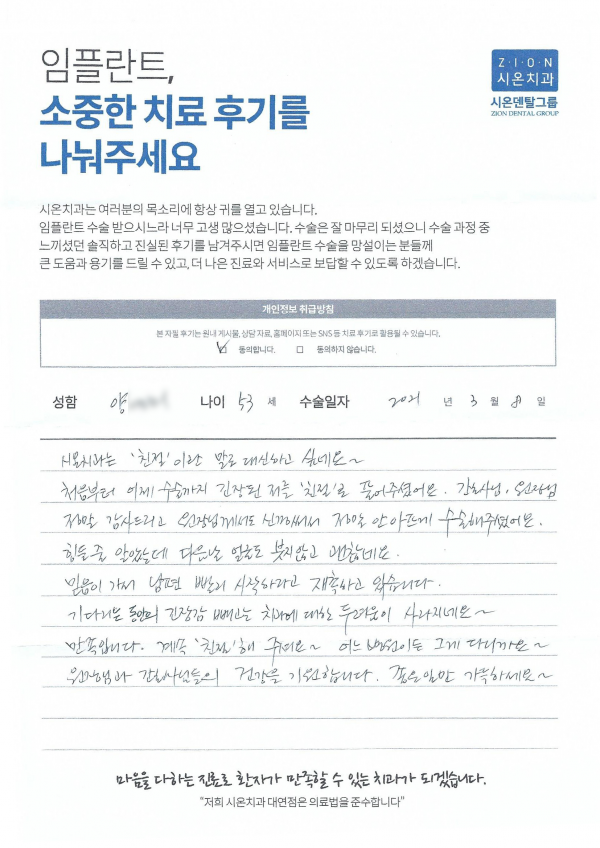 임플란트,
소중한 치료 후기를
나눠주세요
Z·I·O·N
시온치과
시온덴탈그룹
ZION DENTAL GROUP
시온치과는 여러분의 목소리에 항상 귀를 열고 있습니다.
임플란트 수술 받으시느라 너무 고생 많으셨습니다. 수술은 잘 마무리 되셨으니 수술 과정 중
느끼셨던 솔직하고 진실된 후기를 남겨주시면 임플란트 수술을 망설이는 분들께
큰 도움과 용기를 드릴 수 있고, 더 나은 진료와 서비스로 보답할 수 있도록 하겠습니다.
개인정보 취급방침
본 자필 후기는 원내 게시물, 상담 자료, 홈페이지 또는 SNS 등 치료 후기로 활용될 수 있습니다.
동의합니다. 동의하지 않습니다.
성함 양 나이 53 세 수술일자 2021 년 3 월 8 일
시온치과는 '친절'이란 말로 대신하고 싶네요~
처음부터 어제 수술까지 긴장된 저를 '친절'로 풀어주셨어요. 간호사님, 원장님
정말 감사드리고 원장님께서도 신경써서 정말 안아프게 수술해주셨어요.
힘들줄 알았는데 다음날 얼굴도 붓지않고 괜찮네요.
믿음이 가서 남편 빨리 시작하라고 재촉하고 있습니다.
기다리는 동안의 긴장감 빼고는 치과에 대한 두려움이 사라지네요~
만족입니다. 계속 '친절'해 주세요~ 어느 병원이든 그게 다니까요~
원장님과 간호사님들의 건강을 기원합니다. 좋은일만 가득하세요~
마음을 다하는 진료로 환자가 만족할 수 있는 치과가 되겠습니다.
"저희 시온치과 대연점은 의료법을 준수합니다"